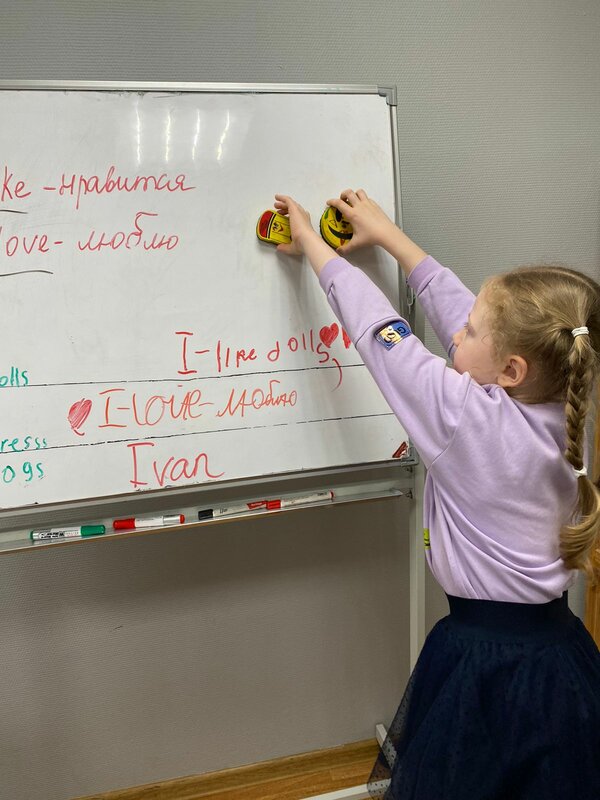 ke - нравится
love - люблю
I - like dolls
olls
I - love - люблю
resss
ogs
Ivan